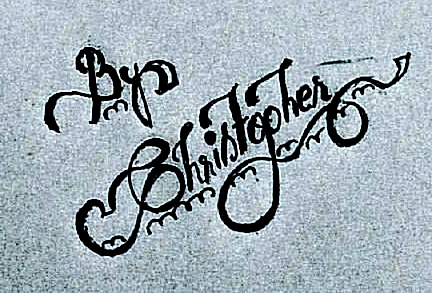 By
Christopher